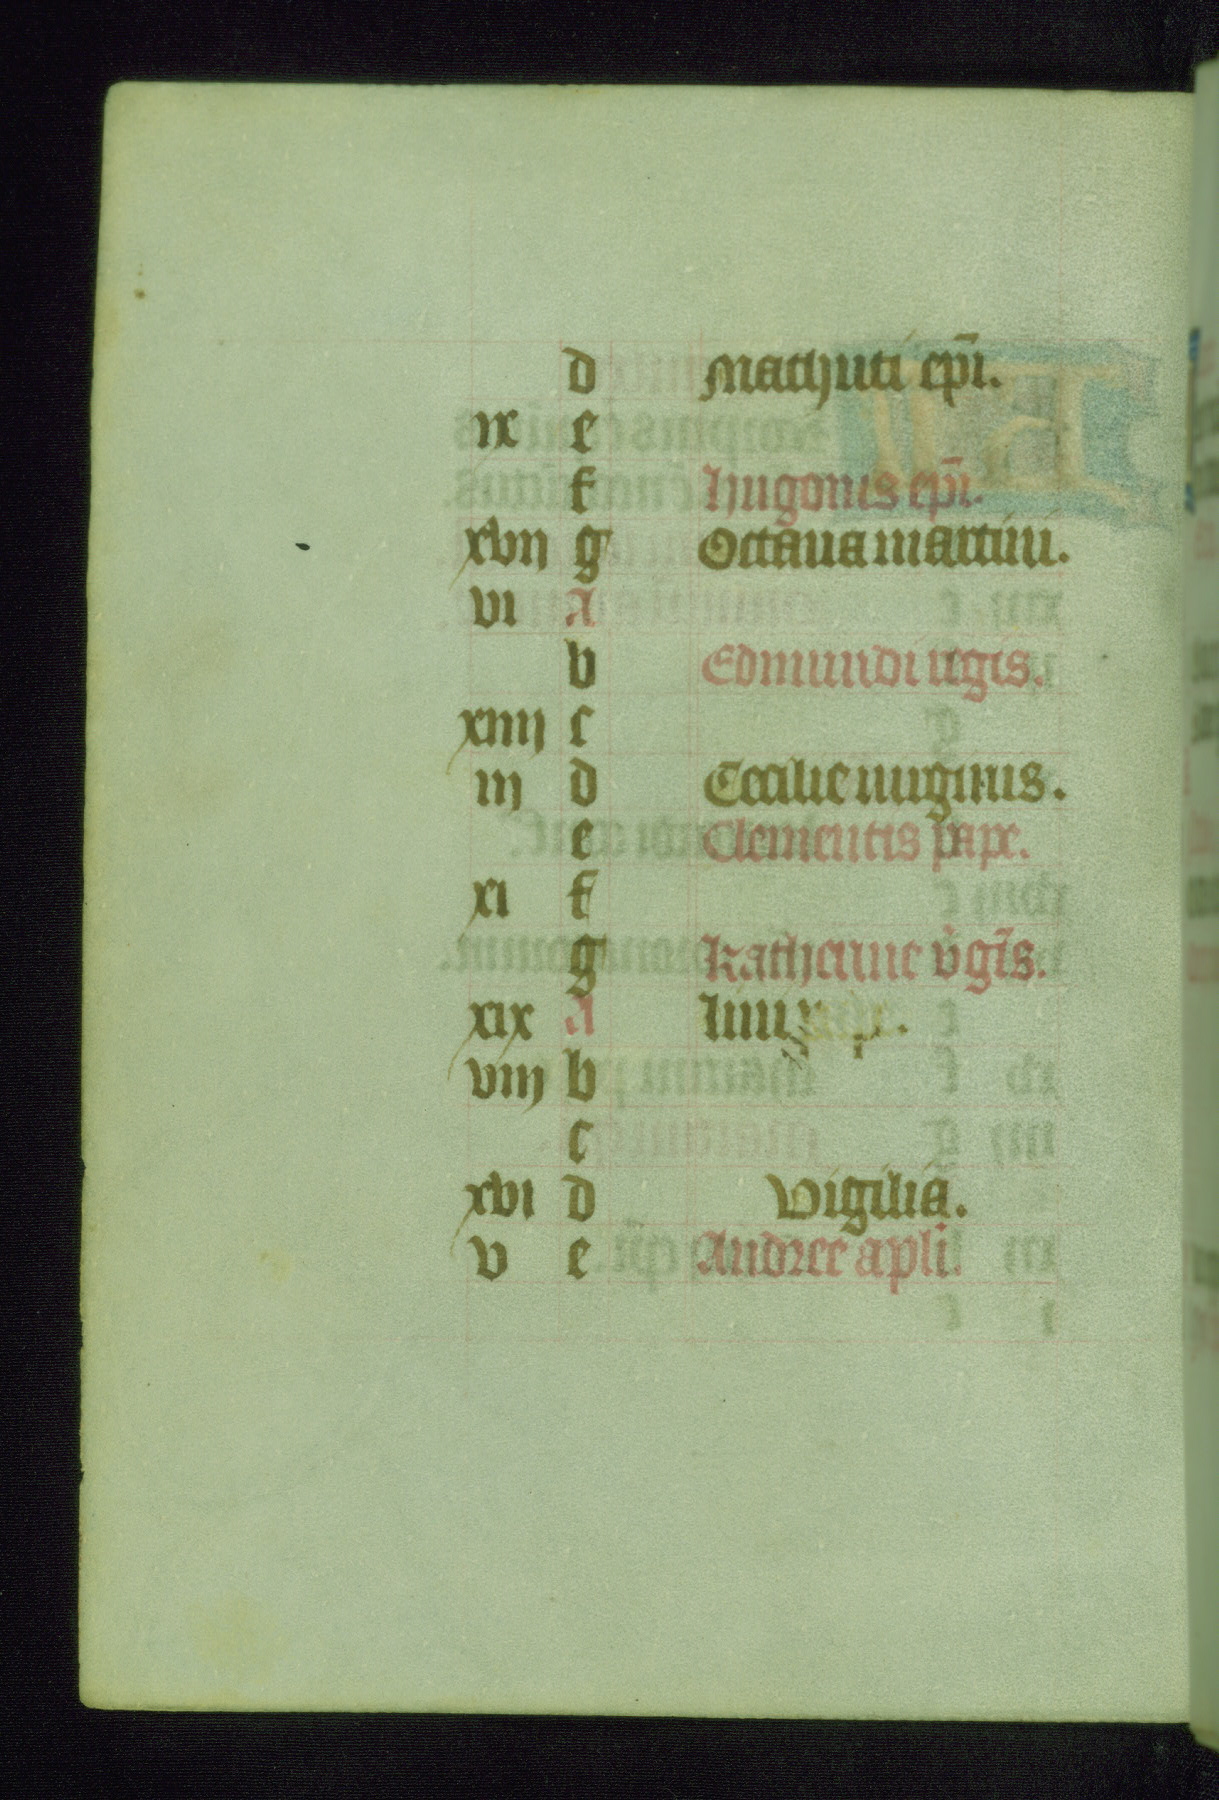 d Machuti ep̄i.
ix e
f hugonis ep̄i.
xvij g Octaua martini.
vi A
b Edmundi regis.
xiiij c
iij d Cecilie uirginis.
e Clementis pape.
xi f
g Katherine v̇gīs.
xix A lini
viij b
c
xvi d Vigilia.
v e Andree apli.